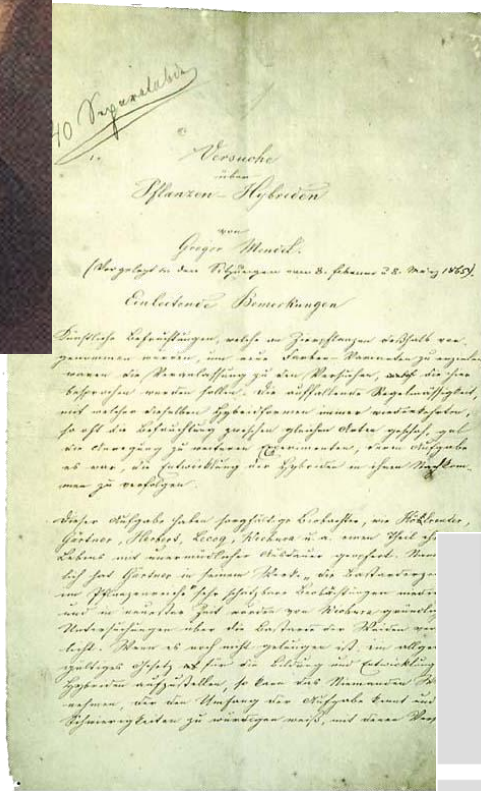 40 Separatabdr
Versuche
über
Pflanzen-Hybriden
von
Gregor Mendel.
(Vorgelegt in den Sitzungen vom 8. Februar u 8. März 1865).
Einleitende Bemerkungen
Künstliche Befruchtungen, welche an Zierpflanzen deßhalb vor-
genommen wurden, um neue Farben-Varianten zu erzielen
waren die Veranlassung zu den Versuchen, die hier
besprochen werden sollen. Die auffallende Regelmässigkeit,
mit welcher dieselben Hybridformen immer wiederkehrten,
so oft die Befruchtung zwischen gleichen Arten geschah, gab
die Anregung zu weiteren Experimenten, deren Aufgabe
es war, die Entwicklung der Hybriden in ihren Nachkom-
men zu verfolgen.
Dieser Aufgabe haben sorgfältige Beobachter, wie Kölreuter,
Gärtner, Herbert, Lecoq, Wichura u. a. einen Theil
Lebens mit unermüdlicher Ausdauer geopfert.
lich hat Gärtner in seinem Werke „die
im Pflanzenreiche" sehr schätzbare Beobachtungen
und in neuester Zeit wurden von Wichura
Untersuchungen über die Bastarde der Weiden
licht. Wenn es noch nicht gelungen ist, ein
giltiges Gesetz für die Bildung und Entwicklung
Hybriden aufzustellen, so kann das Niemanden
nehmen, der den Umfang der Aufgabe kennt und
Schwierigkeiten zu würdigen weiß, mit denen